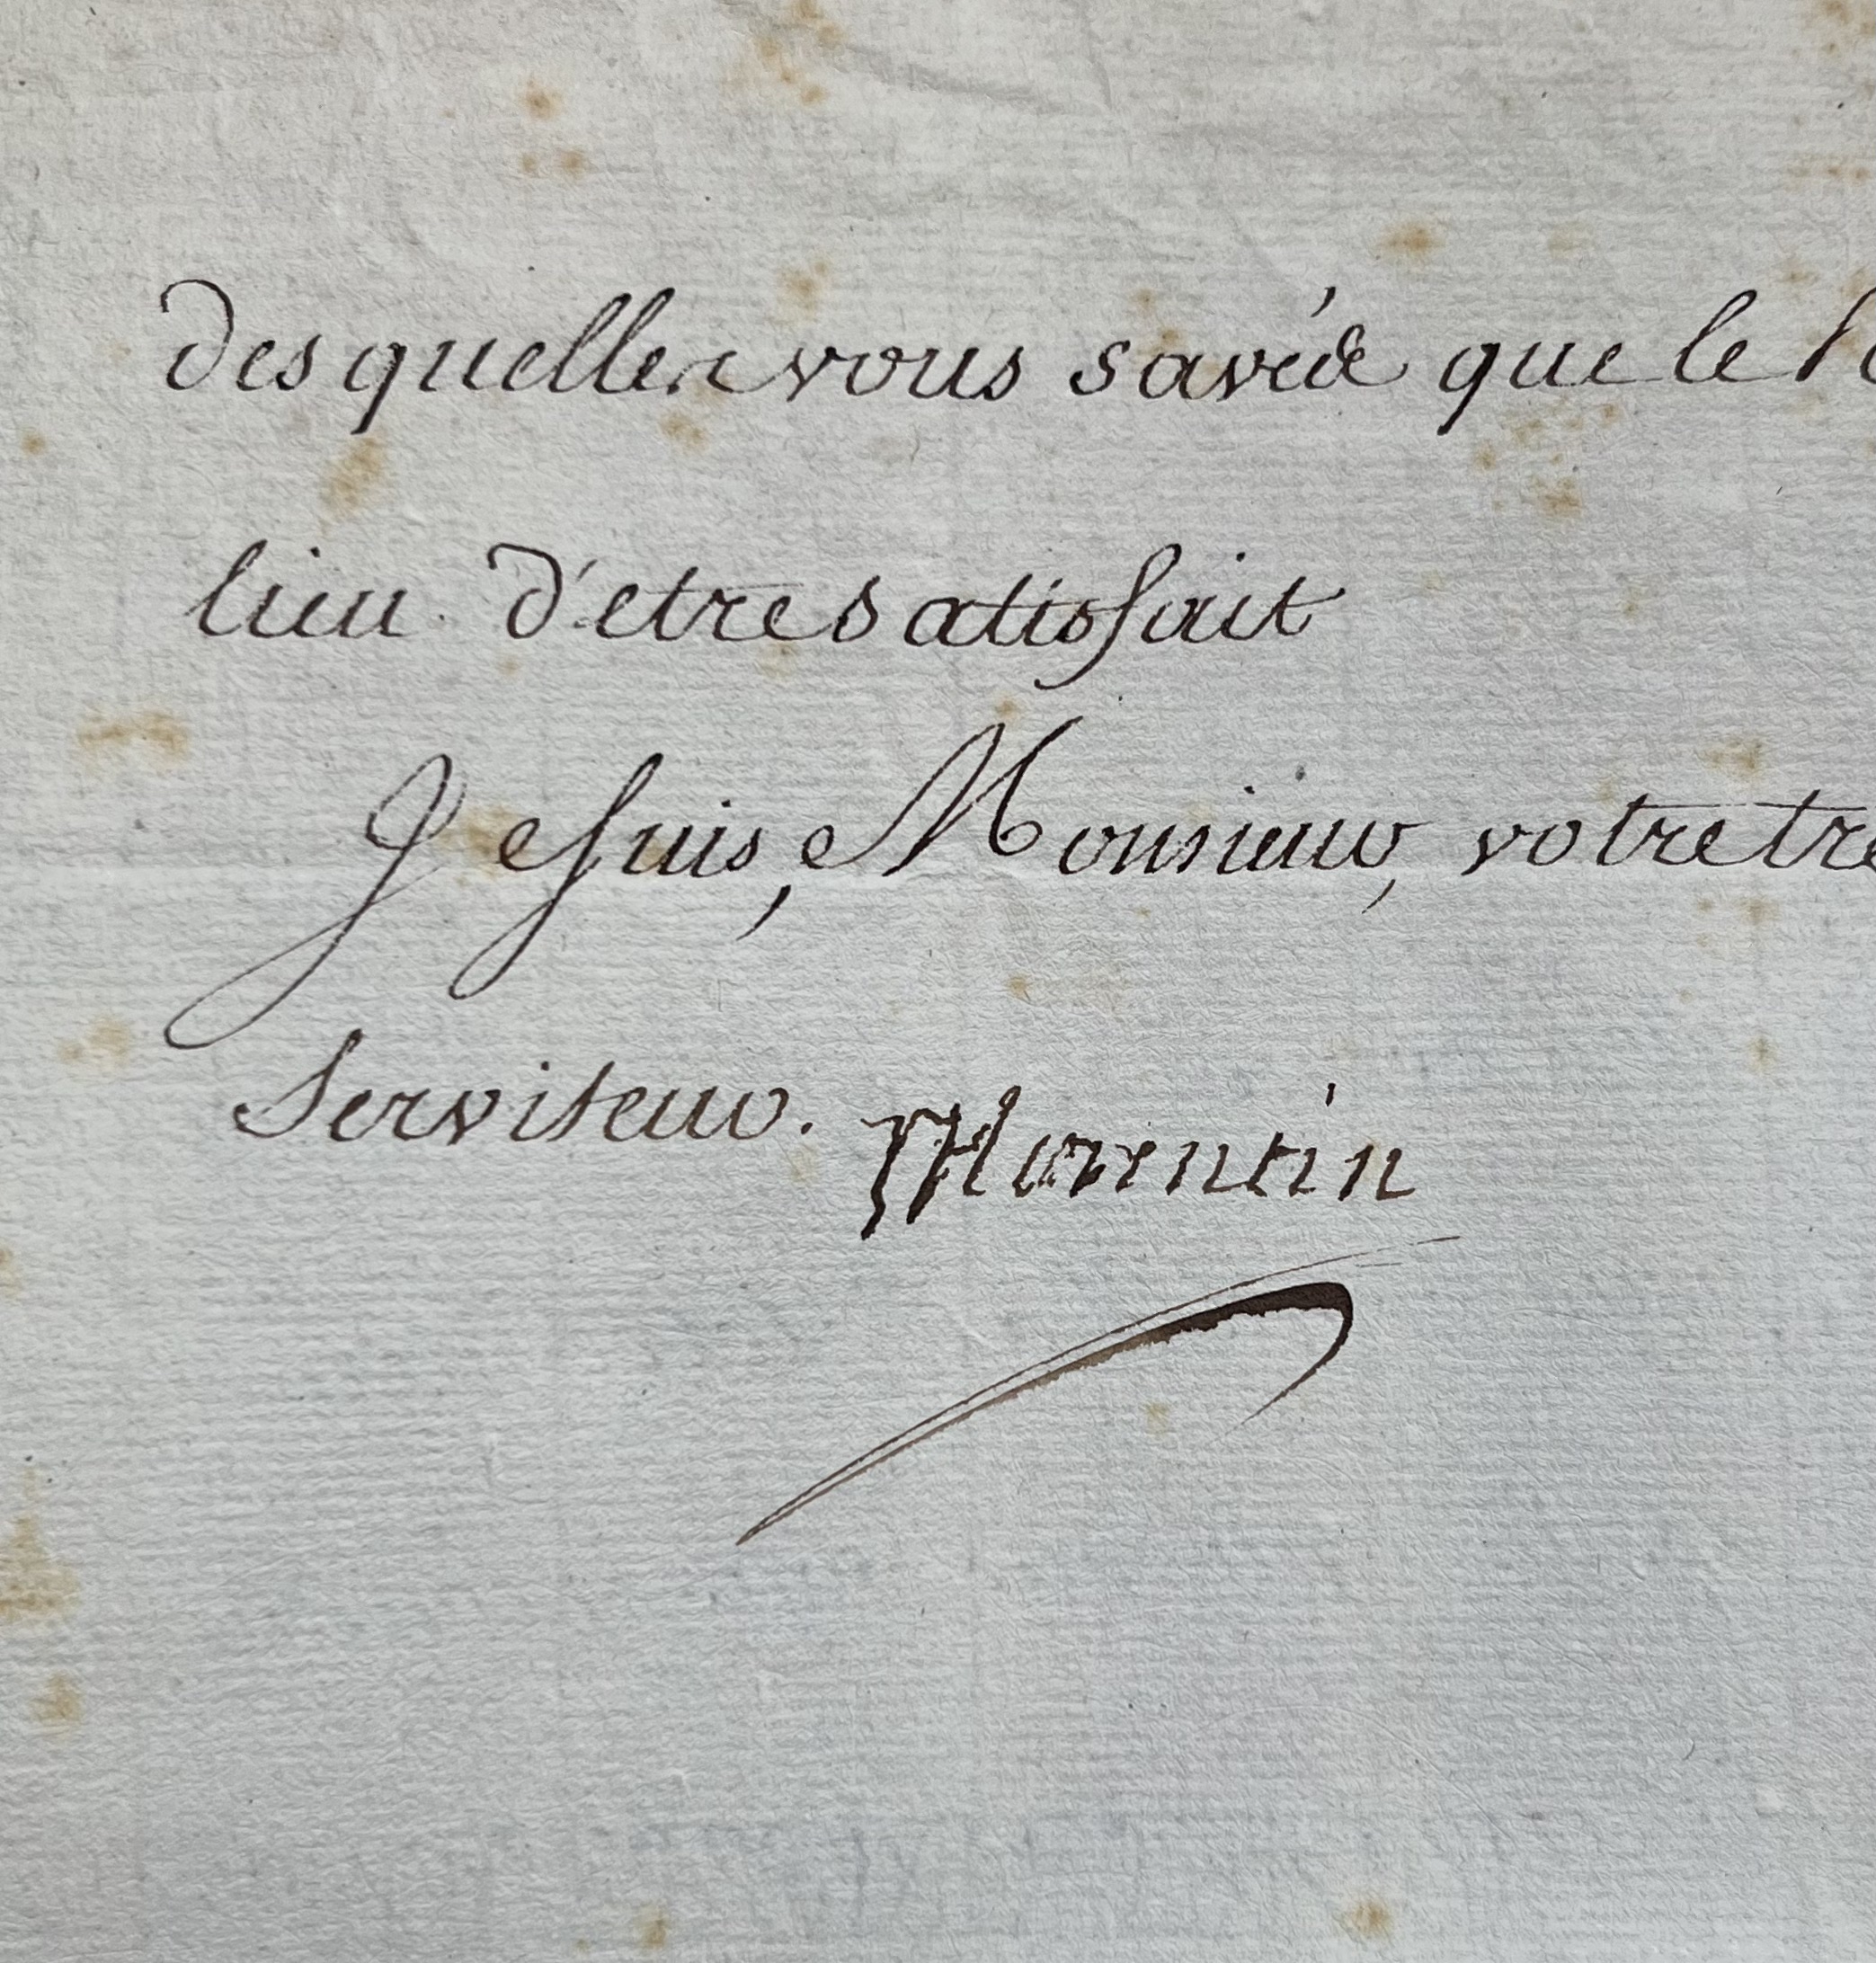 desquelles vous savéz que le
lieu d'etre satisfait
Je suis, Monsieur, votre tre
Serviteur.